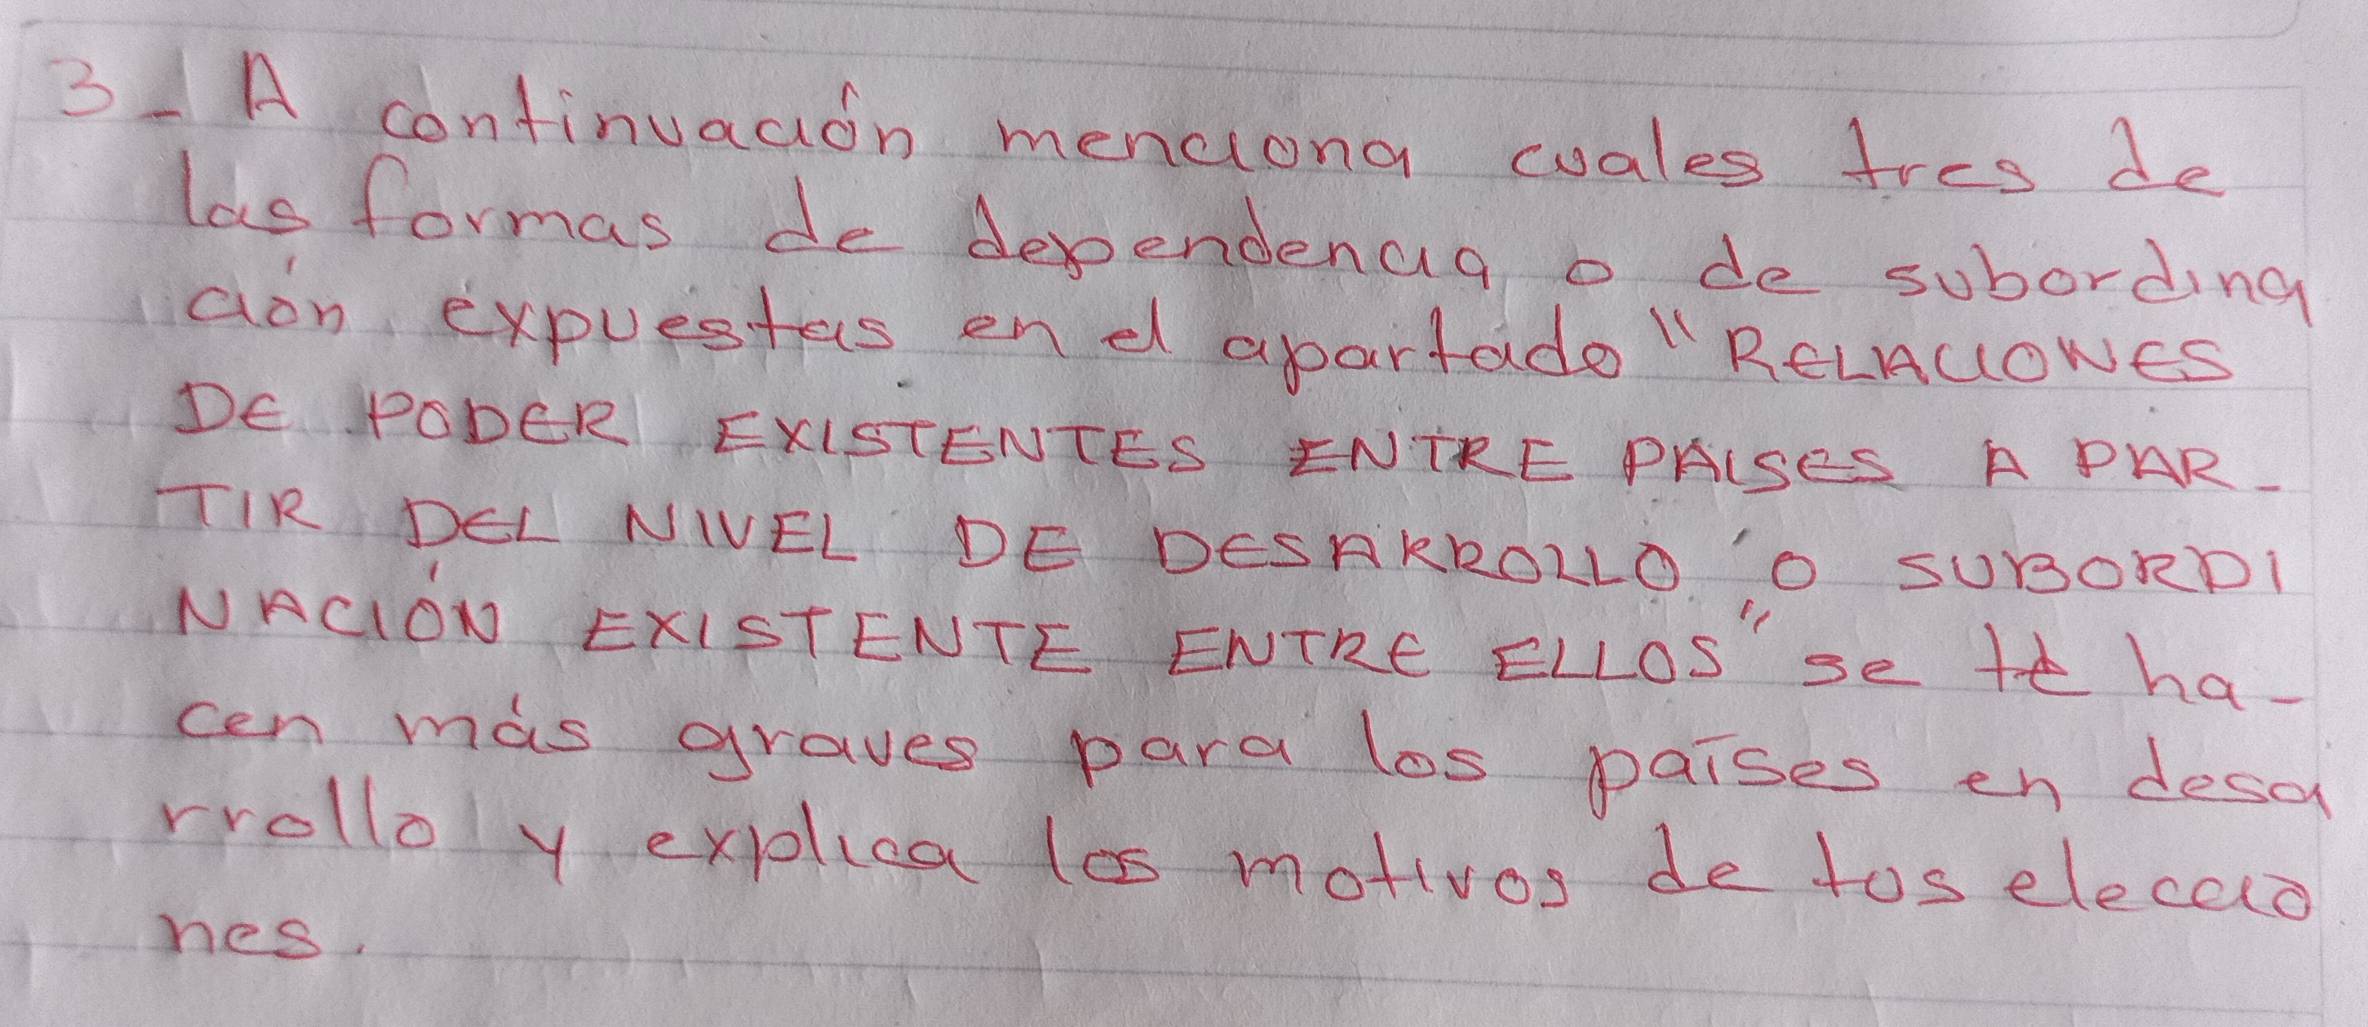 3- A continuación menciona cuales tres de
las formas de dependencia o de subordina
ción expuestas en el apartado "RELACIONES
DE PODER EXISTENTES ENTRE PAISES A PAR-
TIR DEL NIVEL DE DESARROLLO O SUBORDI
NACIÓN EXISTENTE ENTRE ELLOS" se te ha-
cen más graves para los países en desa
rrollo y explica los motivos de tus eleccio
nes.